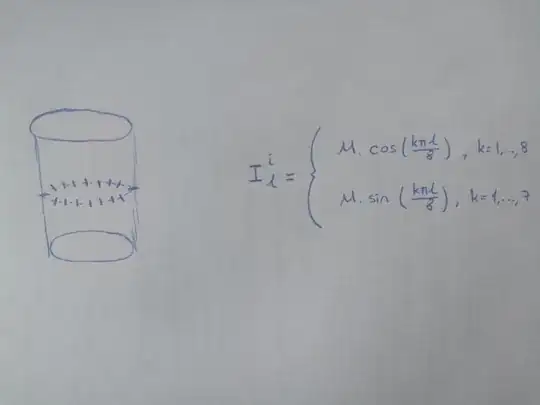 I_l^i = { M. cos(kπl/8), k=1,..,8
M. sin(kπl/8), k=1,...,7